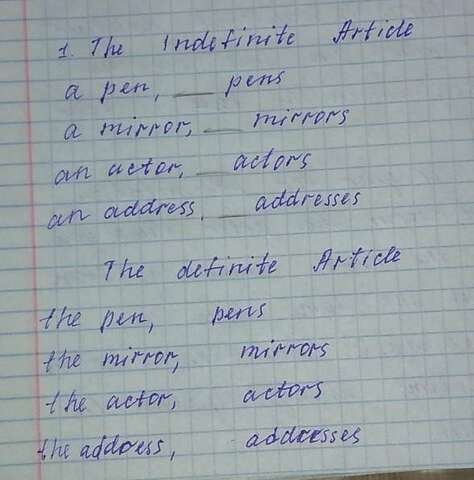 1. The Indefinite Article
a pen, __ pens
a mirror, __ mirrors
an actor, __ actors
an address, __ addresses
The definite Article
the pen, pens
the mirror, mirrors
the actor, actors
the address, addresses